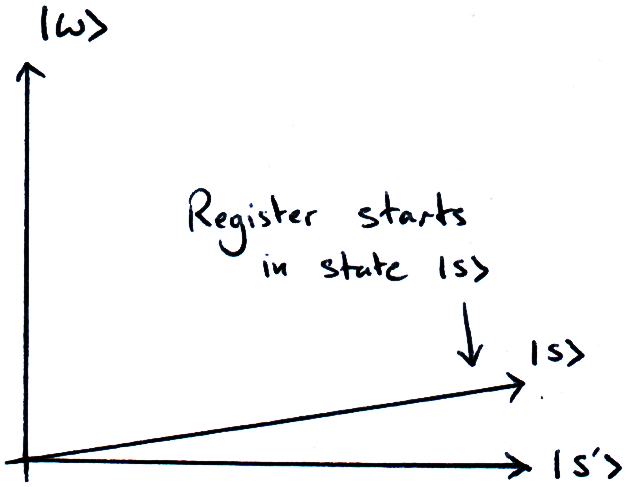 |ω>
Register starts
in state |s>
|s>
|s'>